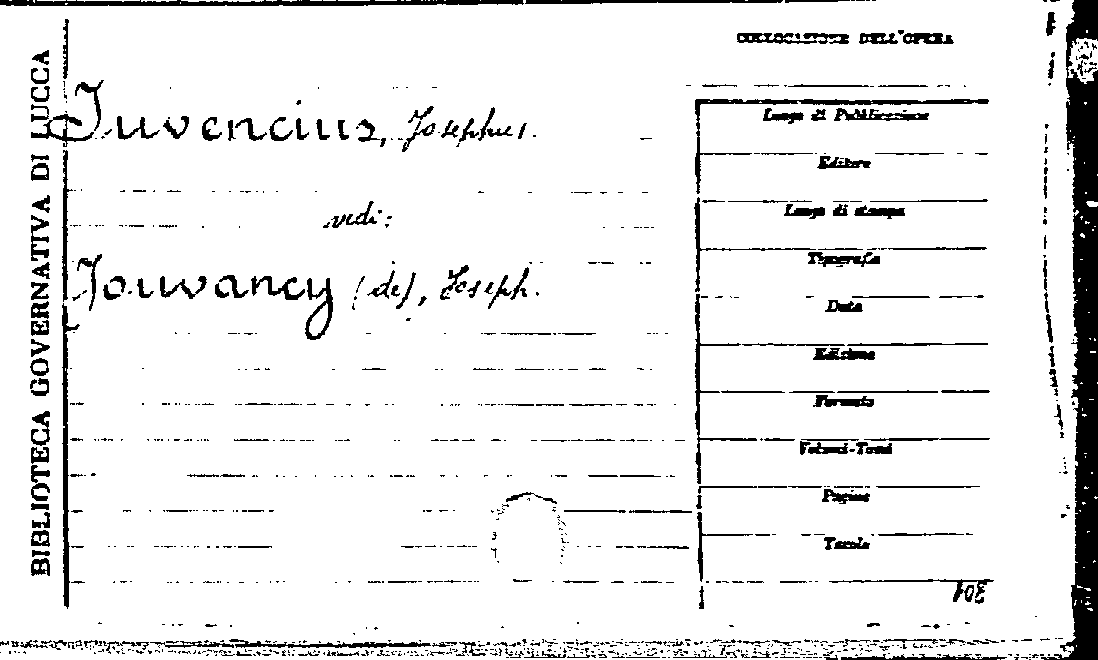 BIBLIOTECA GOVERNATIVA DI LUCCA
COLLOCAZIONE DELL'OPERA
Juvencius, Josephus.
vedi:
Jouvancy (de), Joseph.
Luogo di Pubblicazione
Editore
Luogo di stampa
Tipografia
Data
Edizione
Formato
Volumi-Tomi
Pagine
Tavole